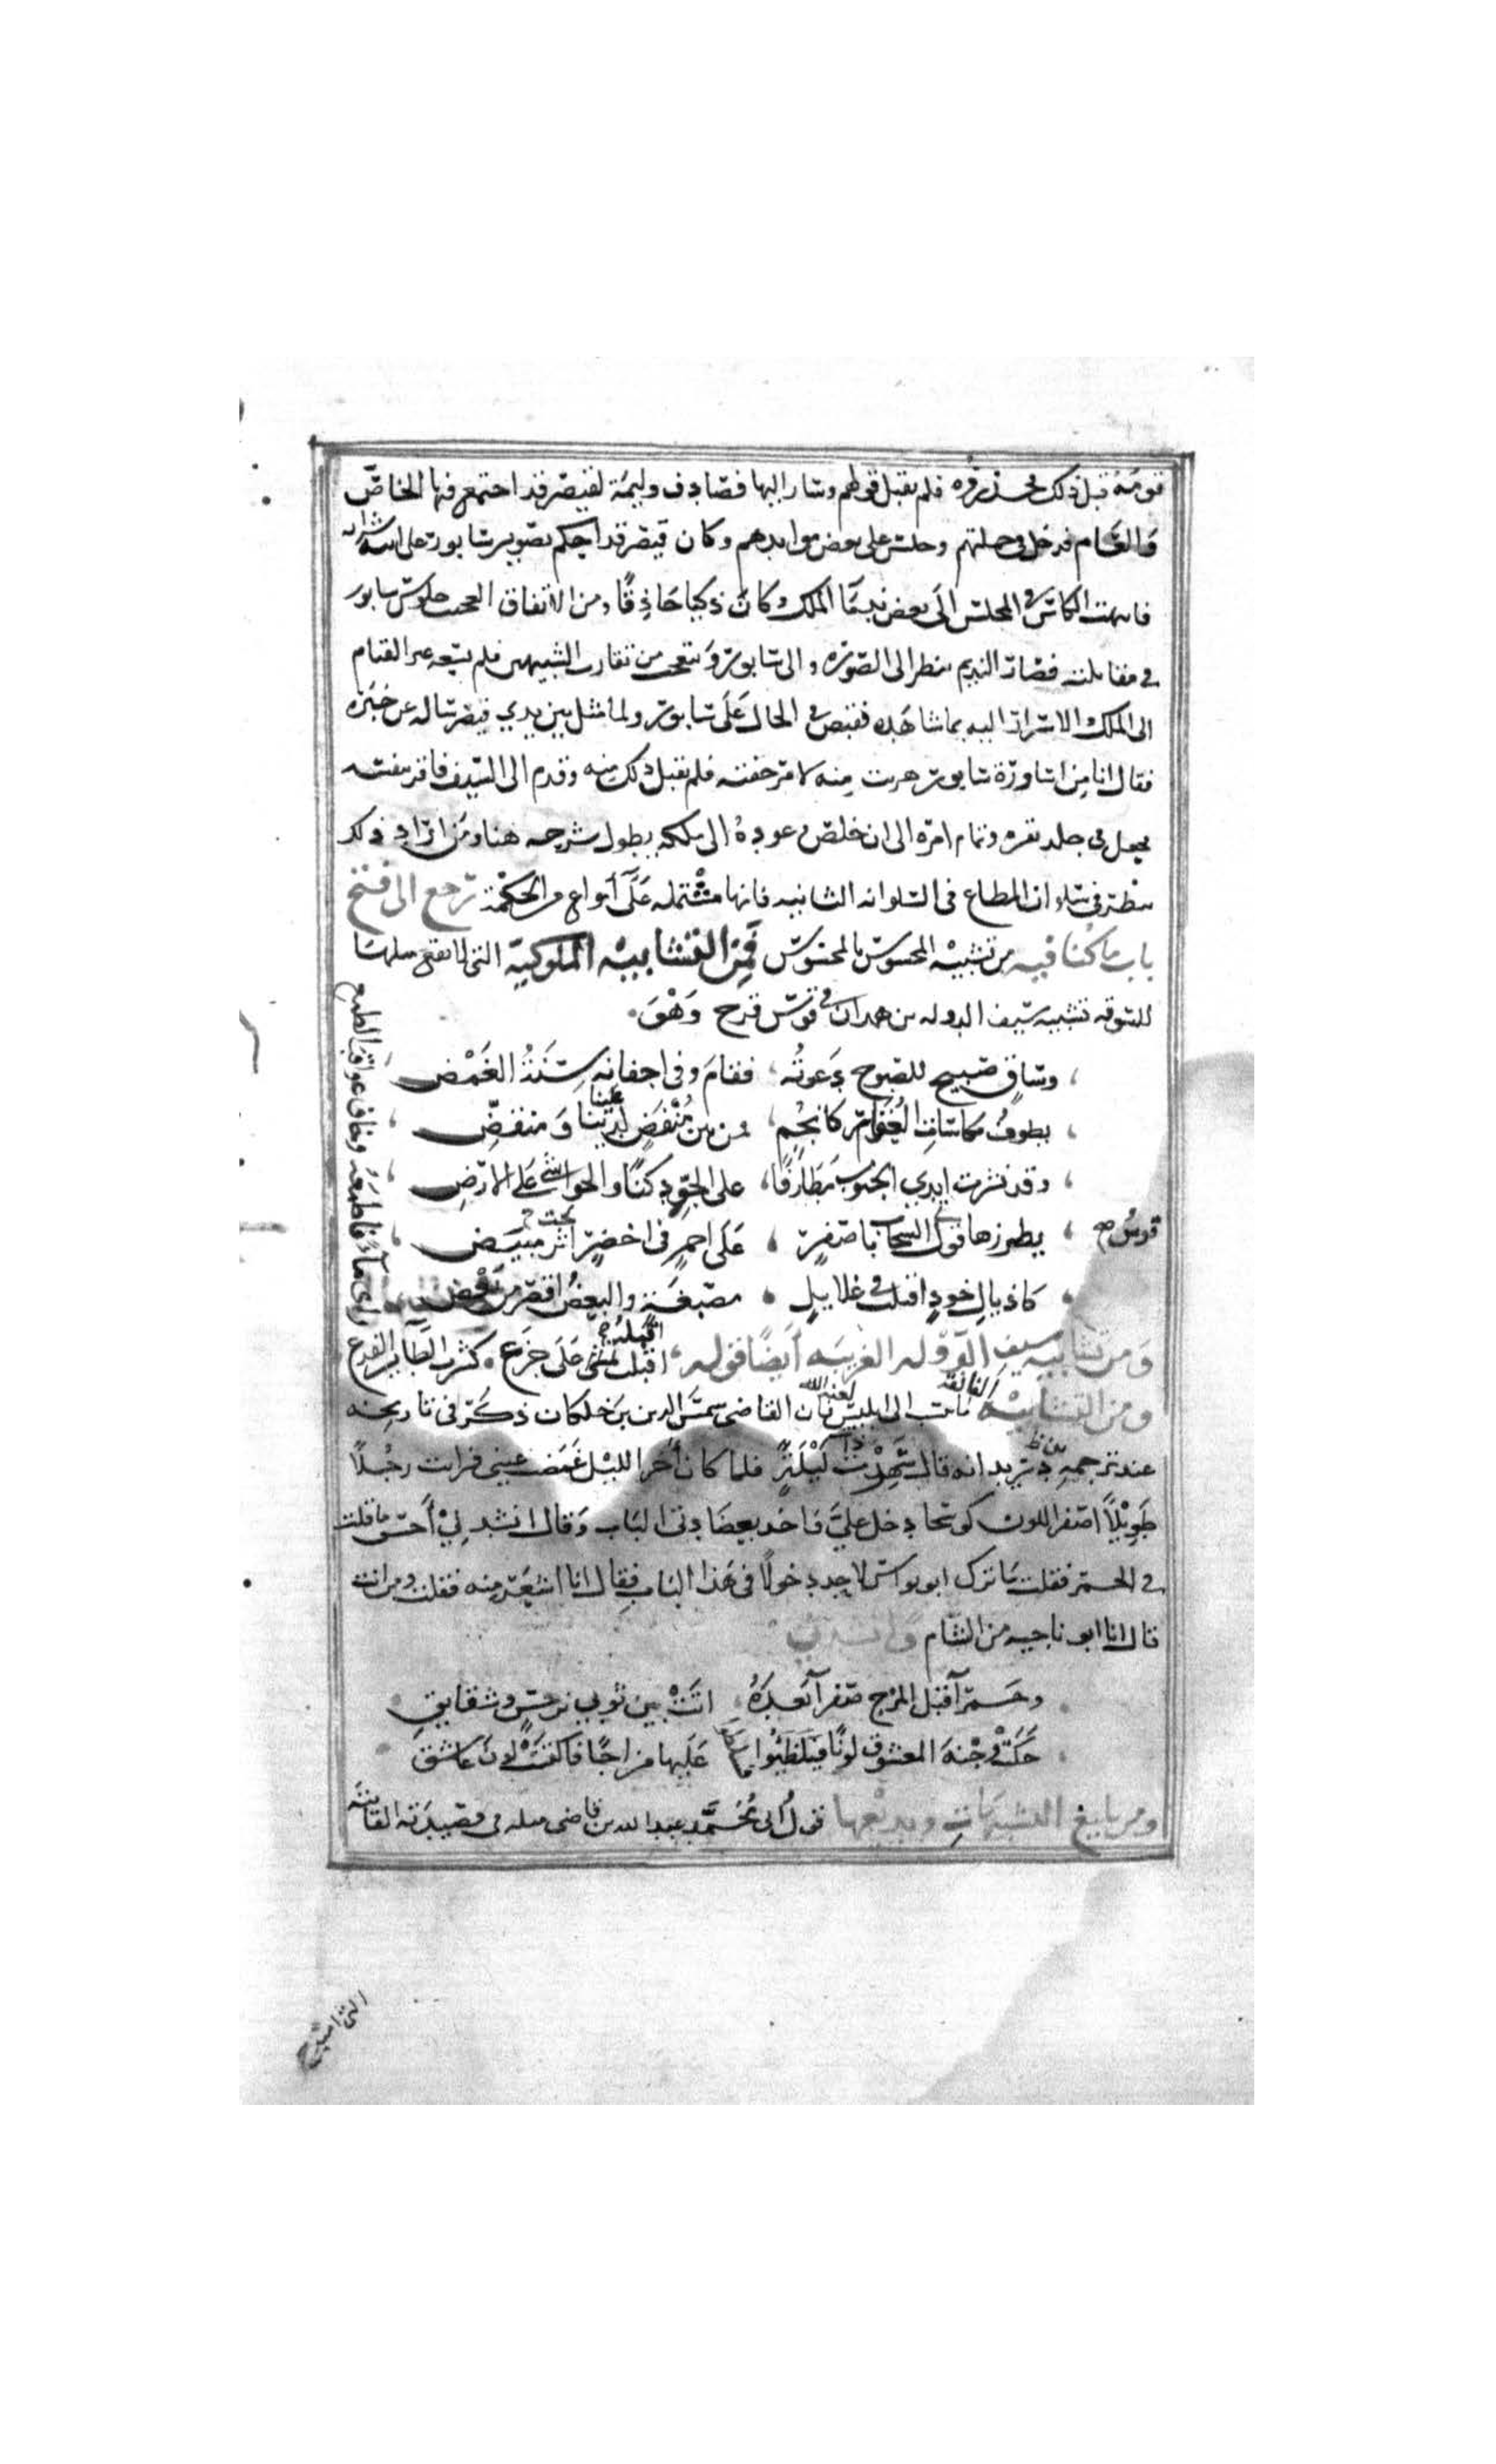 قومه قبل ذلك فلم يقبل قولهم وسار اليها فصادف وليمة لقيصر قد اجتمع فيها الخاص
والعام فدخل في جملتهم وجلس على بعض موائدهم وكان قيصر قد احكم تصوير سابور على آنية شرابه
فانتهت الكاس في المجلس الى بعض ندما الملك وكان ذكيا حاذقا ومن الاتفاق العجيب جلوس سابور
في مقابلته فصار النديم ينظر الى الصورة والى سابور ويتعجب من تقارب الشبيهين فلم يسعه غير القيام
الى الملك الاسرار اليه بما شاهده فقبض في الحال على سابور ولما مثل بين يدي قيصر ساله عن خبره
فقال انا من اساورة سابور هربت منه لامر خفته فلم يقبل ذلك منه وقدم الى السيف فاقر بنفسه
فجعل في جلد بقره وتمام امره الى ان خلص وعوده الى ملكه يطول شرحه هنا ومن اراد ذلك
ينظر في سلوان المطاع في السلوانه الثانيه فانها مشتمله على أنواع من الحكمة نرجع الى فتح
باب ما كنا فيه من تشبيه المحسوس بالمحسوس فمن التشابيه الملوكية التي لا تقع مثلها
للسوقه تشبيه سيف الدوله بن حمدان في قوس قزح وَهْوَ
وساقٍ صبيح للصبوح دعوتُه فقامَ وفي اجفانه سِنَةُ الغَمْض
يطوفُ بكاسات العقار كانجُم فمن بين مُنْقضٍ علينا ومنفضِّ
وقد نشرت ايدي الجنوب مَطارفًا على الجوّ دكنًا والحواشي على الارضِ
يطرزها قوس السحاب باصفرٍ على احمرٍ في اخضرٍ تحت مبيض
كاذيالِ خودٍ اقبلت في غلايلٍ مصبغة والبعضُ اقصر من بعض
ومن تشابيه سيف الدوله الغريبه أيضًا قوله اقبّله على جزع كشرب الطاير الفزع
راى ماءً فاطمعَه وخاف عواقب الطمع
ومن التشابيه الفايقه ما نسب الى ابليس لعنه الله فان القاضي شمس الدين بن خلكان ذكر في تاريخه
عند ترجمه بن دريد انه قال سَهِرْت ذات لَيْلَةٍ فلما كان أخر الليل غمضت عيني فرايت رجُلاً
طَوِيْلاً اصفر اللون كوسجا دخل عليّ فاخذ بعضادتي الباب وقال انشد لِيْ أحسن ما قلت
في الخمر فقلت ما ترك ابو نواس لاحد دخولًا في هذا الباب فقال انا اشعر منه فقلت ومن انت
قال انا ابو ناجيه من الشام وانشدني
وحمرآ قبل المزج صفرآ بعدَهُ اتَتْ بين ثوبي نرجس وشقايق
حكَتْ وجْنة المعشوق لونًا فسلطوا عليها مزاجًا فاكتست لون عاشق
ومن بليغ التشبيهات وبديعها قول ابي محمد عبد الله بن قاضي ميله في قصيدته الفائيه
التي امتدح